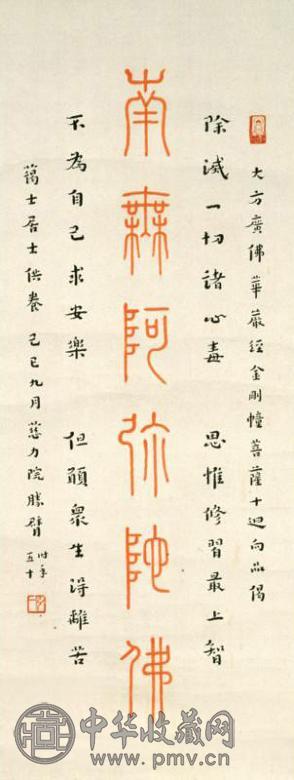 大方廣佛華嚴經金剛幢菩薩十迴向品偈
除滅一切諸心毒　思惟修習最上智
南無阿彌陀佛
不為自己求安樂　但願眾生得離苦
藹士居士供養　己巳九月　慈力院勝臂　时年五十
中华收藏网
www.pmv.cn